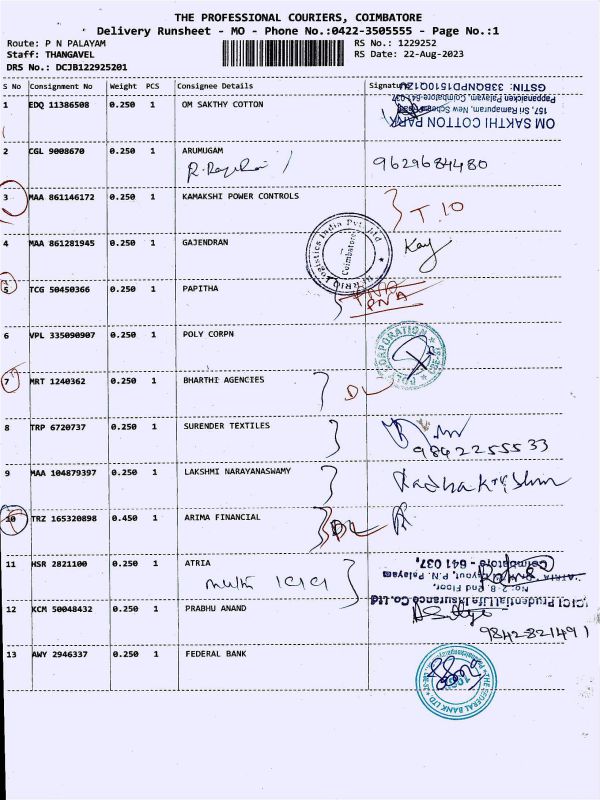 THE PROFESSIONAL COURIERS, COIMBATORE
Delivery Runsheet - MO - Phone No.:0422-3505555 - Page No.:1
Route: P N PALAYAM RS No.: 1229252
Staff: THANGAVEL RS Date: 22-Aug-2023
DRS No.: DCJB122925201
S No Consignment No Weight PCS Consignee Details Signature
GSTIN: 33BQNPD1510Q1ZU
Pappanaicken Palayam, Coimbatore-641 037
157, Sri Ramapuram, New Scheme Road
OM SAKTHI COTTON PARK
1 EDQ 11386508 0.250 1 OM SAKTHY COTTON
2 CGL 9008670 0.250 1 ARUMUGAM
9629684480
3 MAA 861146172 0.250 1 KAMAKSHI POWER CONTROLS
T.10
4 MAA 861281945 0.250 1 GAJENDRAN
Logistics India Pvt. Ltd
Coimbatore
Kay
5 TCG 50450366 0.250 1 PAPITHA
PNA
6 VPL 335090907 0.250 1 POLY CORPN
POLY CORPORATION
7 MRT 1240362 0.250 1 BHARTHI AGENCIES
DL
8 TRP 6720737 0.250 1 SURENDER TEXTILES
9842255533
9 MAA 104879397 0.250 1 LAKSHMI NARAYANASWAMY
Radhakrishnan
10 TRZ 165320898 0.450 1 ARIMA FINANCIAL
DL
11 HSR 2821100 0.250 1 ATRIA
Coimbatore - 641 037,
Layout, P.N. Palayam
No: 2-B, 2nd Floor,
"ATRIA
ICICI Prudential Life Insurance Co. Ltd
12 KCM 50048432 0.250 1 PRABHU ANAND
9842821491
13 AWY 2946337 0.250 1 FEDERAL BANK
THE FEDERAL BANK LTD